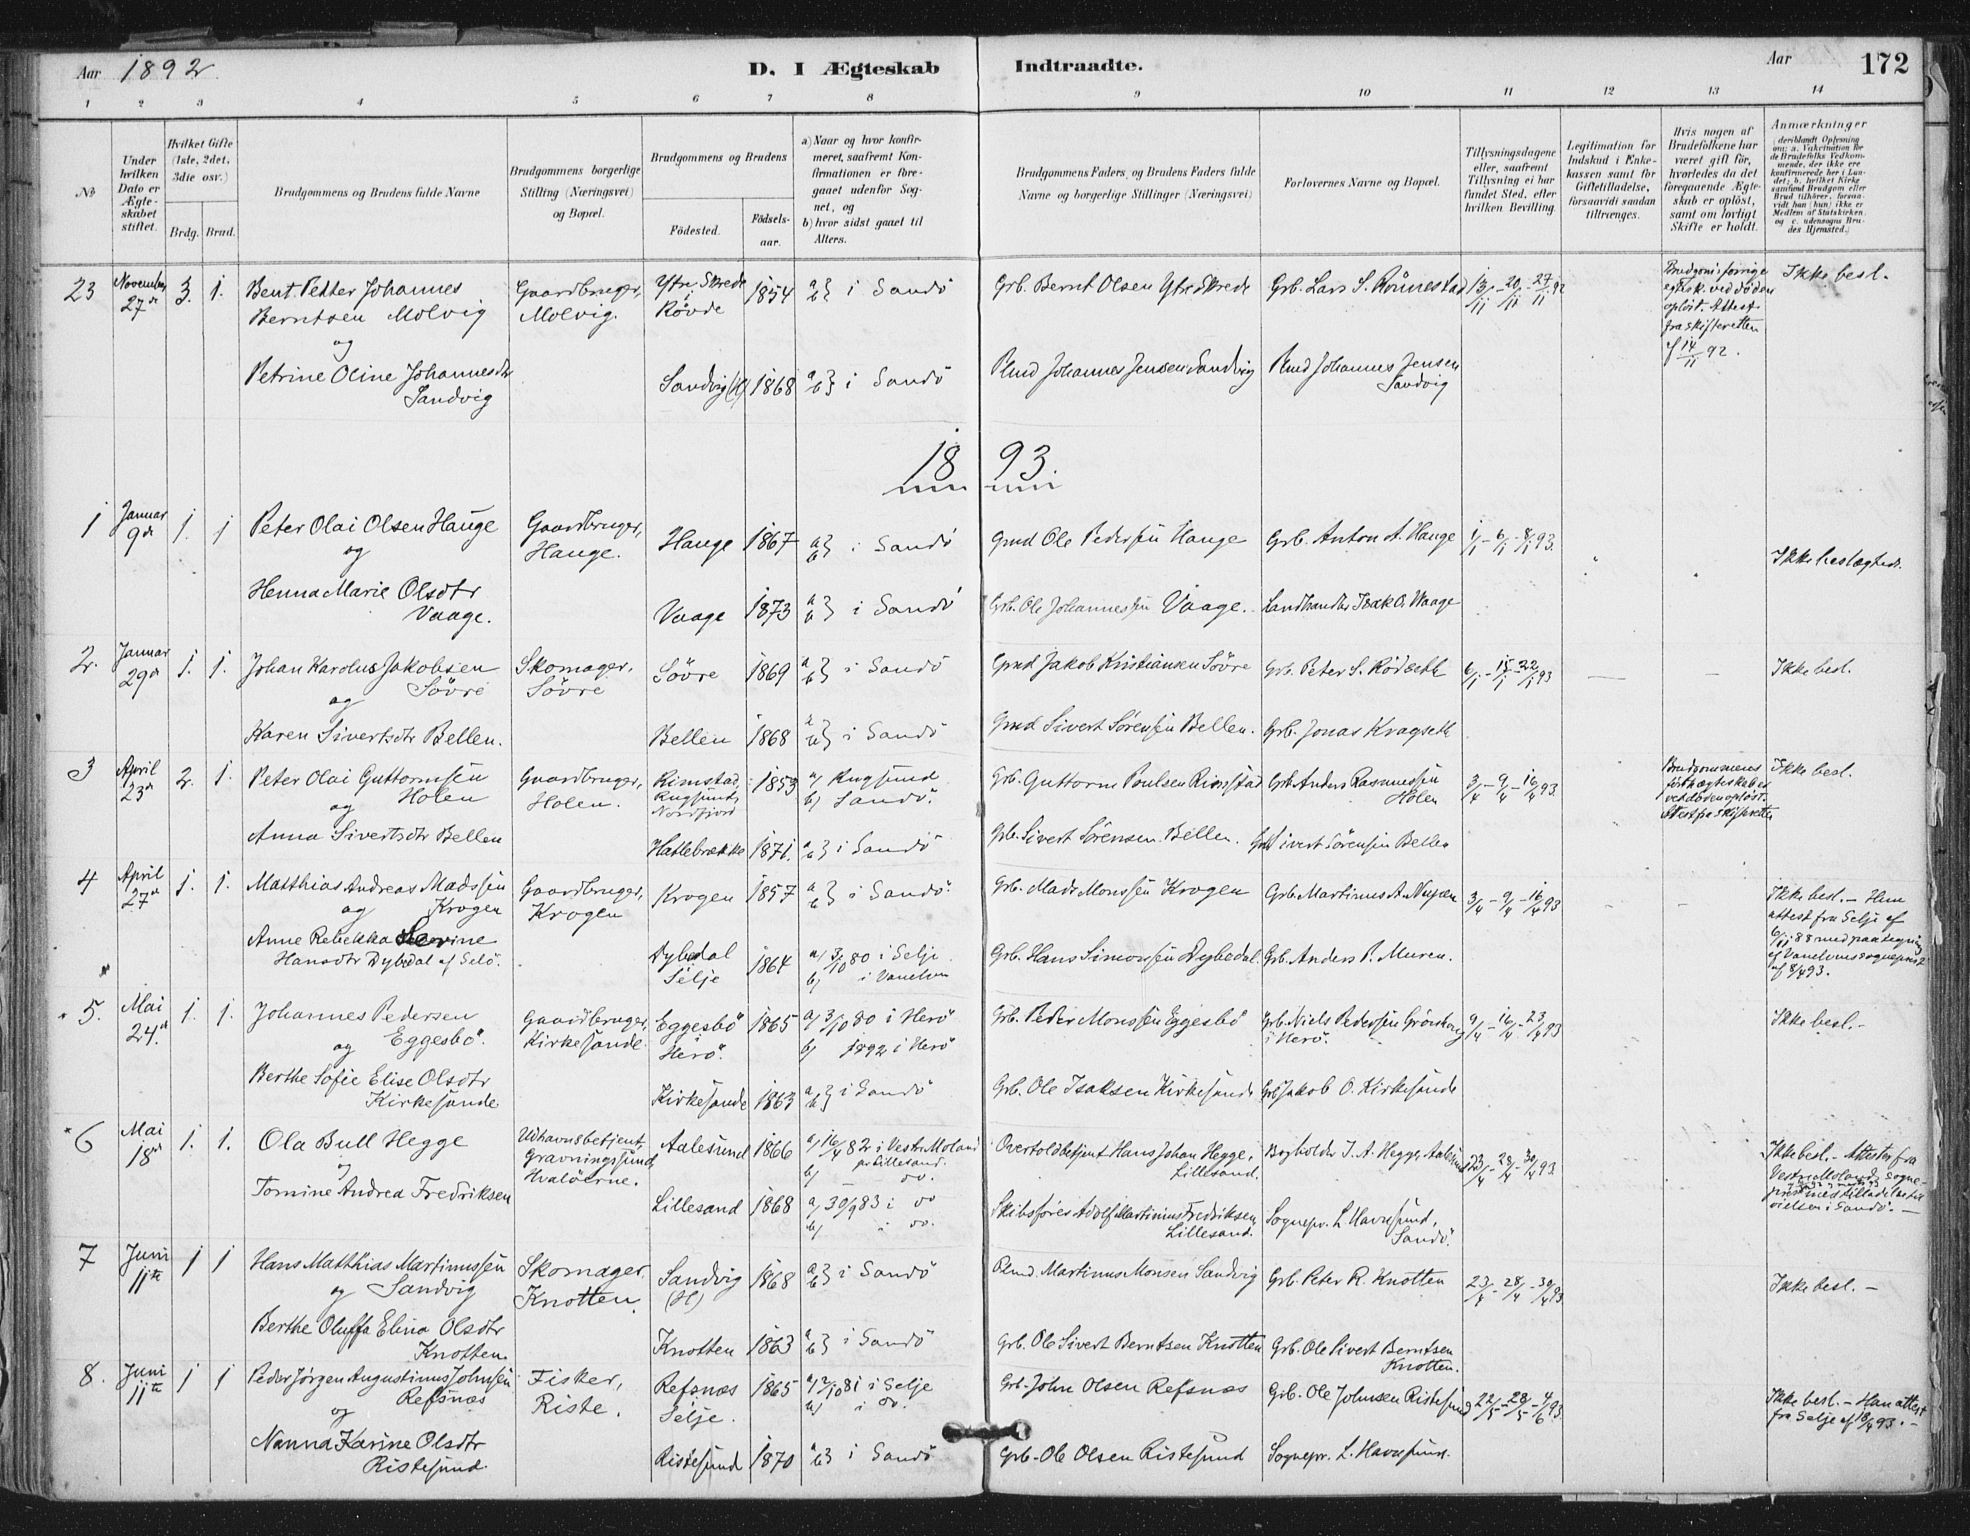 Aar 1892
D. I Ægteskab Indtraadte.
Aar 172
1 2 3 4 5 6 7 8 9 10 11 12 13 14
No
Under hvilken Dato er Ægteskabet stiftet.
Hvilket Gifte (1ste, 2det, 3die osv.)
Brdg. Brud.
Brudgommens og Brudens fulde Navne
Brudgommens borgerlige Stilling (Næringsvei) og Bopæl.
Brudgommens og Brudens
Födested.
Födselsaar.
a) Naar og hvor konfirmeret, saafremt Konfirmationen er foregaaet udenfor Sognet, og
b) hvor sidst gaaet til Alters.
Brudgommens Faders, og Brudens Faders fulde Navne og borgerlige Stillinger (Næringsvei)
Forlovernes Navne og Bopæl.
Tillysningsdagene eller, saafremt Tillysning ei har fundet Sted, efter hvilken Bevilling.
Legitimation for Indskud i Enkekassen samt for Giftetilladelse, forsaavidt saadan tiltrænges.
Hvis nogen af Brudefolkene har været gift før, hvorledes da det foregaaende Ægteskab er opløst, samt om lovligt Skifte er holdt.
Anmærkninger (deriblandt Oplysning om: a. Vakcination for de Brudefolks Vedkommende, der ikke ere konfirmerede her i Landet; b. hvilket Kirkesamfund Brudgom eller Brud tilhører, forsaavidt han (hun) ikke er Medlem af Statskirken, og c. udensogns Brudes Hjemsted.)
23 November 27de 3. 1. Bent Petter Johannes Berntsen Molvig
Gaardbruger, Molvig.
Ytre Skrede i Rövde 1854 a} b} i Sandö
Grb. Bernt Olsen Ytre Skrede
Grb. Lars S. Rönnestad
13/11 - 20/11 - 27/11 92
Brudgoms forrige egtsk. ved döden oplöst. Attest fra skifteretten af 14/11 92.
Ikke besl.
og
Petrine Oline Johannesdtr Sandvig
Sandvig (H) 1868 a} b} i Sandö
Plmd Johannes Jensen Sandvig
Plmd Johannes Jensen Sandvig
1893.
1 Januar 9de 1. 1 Peter Olai Olsen Hauge
Gaardbruger, Hauge.
Hauge 1867 a} b} i Sandö
Gmd Ole Pedersen Hauge
Grb. Anton A. Hauge
1/1 - 6/1 - 8/1 93.
Ikke beslægtede.
og
Henna Marie Olsdtr Vaage.
Vaage 1873 a} b} i Sandö
Grb. Ole Johannessen Vaage.
Landhandler Isak O. Waage
2. Januar 29de 1. 1. Johan Karolus Jakobsen Sövre
Skomager, Sövre
Sövre 1869 a} b} i Sandö
Gmd Jakob Kristiansen Sövre
Grb. Peter S. Rödseth
6/1 - 15/1 - 22/1 93
Ikke besl.
og
Karen Sivertsdtr Bellen.
Bellen 1868 a} b} i Sandö
Gmd Sivert Sørensen Bellen.
Grb. Jonas Kragseth
3 April 23de 2. 1. Peter Olai Guttormsen Holen
Gaardbruger, Holen.
Rimstad, Rugsund, Nordfjord 1853 a) Rugsund b) Sandö.
Grb. Guttorm Poulsen Rimstad
Grb. Anders Rasmussen Holen
3/4 - 9/4 - 16/4 93.
Brudgommens förste ægteskab er ved döden oplöst. Attest fra skifteretten
Ikke besl.
og
Anna Sivertsdtr Bellen
Hatlebrække 1871. a} b} i Sandö
Grb. Sivert Sørensen Bellen.
Grb. Sivert Sørensen Bellen
4 April 27de 1. 1. Matthias Andreas Madssen Krogen
Gaardbruger, Krogen
Krogen 1857 a} b} i Sandö.
Grb. Mads Monssen Krogen
Grb. Martinus A. Nupen
3/4 - 9/4 - 16/4 93
Ikke besl. - Hun attest fra Selje af 6/11 88 med paategning af Vanelvens sogneprest af 8/4 93.
og
Anne Rebekka Severine Hansdtr Dybedal af Selö.
Dybedal Selje 1864 a) 3/10 80 i Selje b) i Vanelven
Grb. Hans Simonssen Dybedal.
Grb. Anders P. Muren.
5. Mai 24de. 1. 1. Johannes Pedersen Eggesbö.
Gaardbruger, Kirkesande.
Eggesbö Herö. 1865 a) 3/10 80 i Herö b) 1892 i Herö
Grb. Peder Monssen Eggesbö
Grb. Niels Pedersen i Herö.
9/4 - 16/4 - 23/4 93
Ikke besl. -
og
Berthe Sofie Elise Olsdtr Kirkesande
Kirkesande 1863 a} b} i Sandö
Grb. Ole Isaksen Kirkesande
Grb. Jakob O. Kirkesande
6 Mai 18de 1. 1. Ola Bull Hegge
Udhavnsbetjent, Gravningssund, Hvalöerne.
Aalesund 1866 a) 16/4 82 i Vestre Moland pr Lillesand. b) do.
Overtoldbetjent Hans Johan Hegge, Lillesand.
Bogholder J. A. Hegge, Aalesund
23/4 - 28/4 - 30/4 93
Ikke besl. - Attester fra Vestre Molands sogneprest med tilladelse til vielsen i Sandö. -
og
Tomine Andrea Fredriksen
Lillesand 1868 a) 30/9 83 i do b) i do.
Skibsfører Adolf Martinius Fredriksen, Lillesand.
Sognepr. L. Havnsund, Sandö.
7 Juni 11te 1 1 Hans Matthias Martinussen Sandvig
Skomager Knotten.
Sandvig (H) 1868 a} b} i Sandö
Plmd. Martinus Monsen Sandvig
Grb. Peter R. Knotten
23/4 - 28/4 - 30/4 93
Ikke besl. -
og
Berthe Oluffa Elina Olsdtr Knotten.
Knotten 1863 a} b} i Sandö
Grb. Ole Sivert Berntsen Knotten
Grb. Ole Sivert Berntsen Knotten.
8. Juni 11te 1 1 Peder Jørgen Augustinus Johnsen Refsnæs
Fisker, Riste.
Refsnæs Selje. 1865 a) 2/10 81 i Selje b) i do.
Grb. John Olsen Refsnæs
Grb. Ole Johnsen Ristesund
22/5 - 28/5 - 4/6 93.
Ikke besl. - Han attest fra Selje af 18/4 93. -
og
Nanna Karine Olsdtr Ristesund.
Ristesund 1870 a} b} i Sandö
Grb. Ole Olsen Ristesund
Sognepr. L. Havnsund.